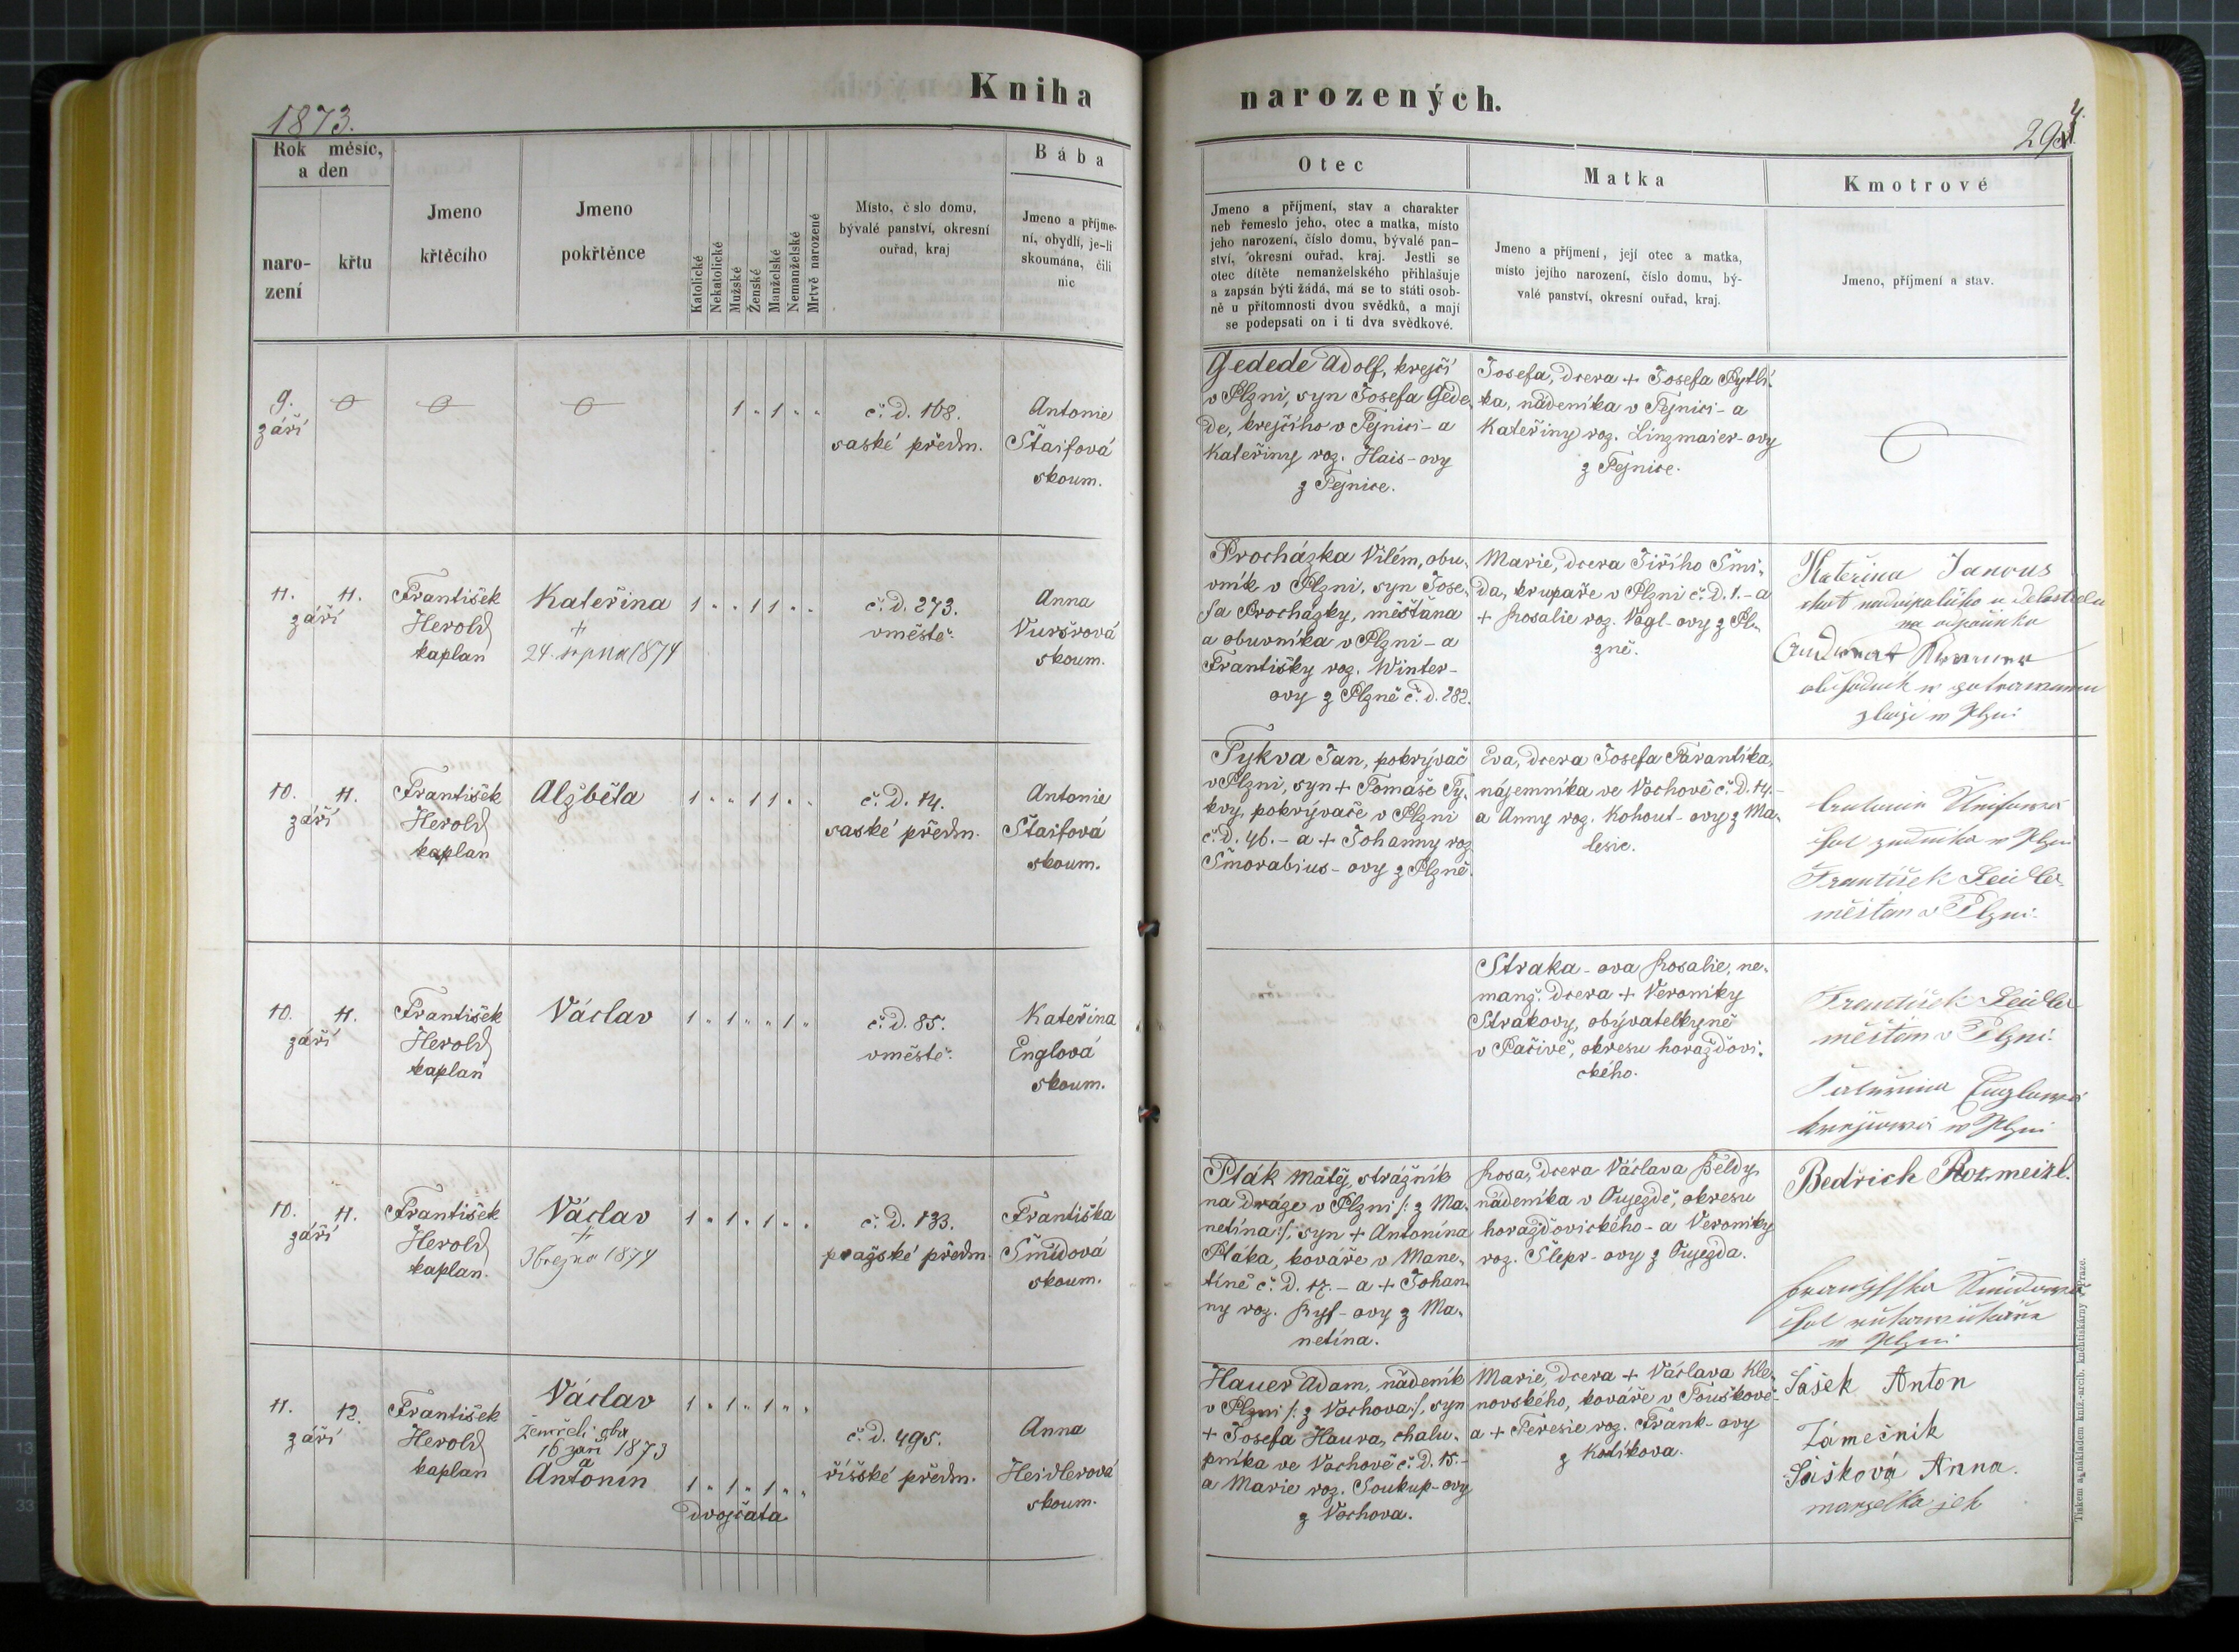 Kniha
narozených.
1873.
294.
Rok měsíc,
a den
naro-
zení
křtu
Jmeno
křtěcího
Jmeno
pokřtěnce
Katolické
Nekatolické
Mužské
Ženské
Manželské
Nemanželské
Mrtvě narozené
Místo, č slo domu,
bývalé panství, okresní
ouřad, kraj
Bába
Jmeno a příjme-
ní, obydlí, je-li
skoumána, čili
nic
Otec
Jmeno a příjmení, stav a charakter
neb řemeslo jeho, otec a matka, místo
jeho narození, číslo domu, bývalé pan-
ství, okresní ouřad, kraj. Jestli se
otec dítěte nemanželského přihlašuje
a zapsán býti žádá, má se to státi osob-
ně u přítomnosti dvou svědků, a mají
se podepsati on i ti dva svědkové.
Matka
Jmeno a příjmení, její otec a matka,
místo jejího narození, číslo domu, bý-
valé panství, okresní ouřad, kraj.
Kmotrové
Jmeno, příjmení a stav.
9.
září
1 " 1 " "
č. d. 168.
saské předm.
Antonie
Štaifová
skoum.
Gedede Adolf, krejčí
v Plzni, syn Josefa Gede-
de, krejčího v Tejnici - a
Kateřiny roz. Hais-ovy
z Tejnice.
Josefa, dcera + Josefa Pytlí-
ka, nádeníka v Tejnici - a
Kateřiny roz. Linzmaier-ovy
z Tejnice.
11. 11.
září
František
Herold
kaplan
Kateřina
+
24. srpna 1874
1 " " 1 1 " "
č. d. 273.
v městě.
Anna
Vuršrová
skoum.
Procházka Vilém, obu-
vník v Plzni, syn Jose-
fa Procházky, měšťana
a obuvníka v Plzni - a
Františky roz. Winter-
ovy z Plzně č. d. 282.
Marie, dcera Jiřího Šmi-
da, krupaře v Plzni č. d. 1. - a
+ Rosalie roz. Vogl-ovy z Pl-
zně.
Kateřina Janous
na odpočinku
w Plzni
10. 11.
září
František
Herold
kaplan
Alžběta
1 " " 1 1 " "
č. d. 14.
saské předm.
Antonie
Štaifová
skoum.
Tykva Jan, pokrývač
v Plzni, syn + Tomáše Ty-
kvy, pokrývače v Plzni
č. d. 46. - a + Johanny roz.
Šmorabius-ovy z Plzně.
Eva, dcera Josefa Parantíka,
nájemníka ve Vochově č. d. 14. -
a Anny roz. Kohout-ovy z Ma-
lesic.
zedníka w Plzni
František Zeidler
měšťan v Plzni.
10. 11.
září
František
Herold
kaplan
Václav
1 " 1 " " 1 "
č. d. 85.
v městě.
Kateřina
Englová
skoum.
Straka-ova Rosalie, ne-
manž. dcera + Veroniky
Strakovy, obývatelkyně
v Pačivě, okresu horažďovi-
ckého.
František Zeidler
měšťan v Plzni.
Kateřina Englowá
w Plzni
10. 11.
září
František
Herold
kaplan.
Václav
+
3 března 1874
1 " 1 " 1 " "
č. d. 133.
pražské předm.
Františka
Šmídová
skoum.
Pták Matěj, strážník
na dráze v Plzni /: z Ma-
netína :/, syn + Antonína
Ptáka, kováře v Mane-
tíně č. d. 17. - a + Johan-
ny roz. Ryf-ovy z Ma-
netína.
Rosa, dcera Václava Běldy,
nádeníka v Oujezdě, okresu
horažďovického - a Veroniky
roz. Šlepr-ovy z Oujezda.
Bedřich Rozmeizl.
Františka Šmídowá
w Plzni
11. 12.
září
František
Herold
kaplan
Václav
Zemřeli oba
16 září 1873
a
Antonín
1 " 1 " 1 " "
1 " 1 " 1 " "
dvojčata
č. d. 495.
říšské předm.
Anna
Heidlerová
skoum.
Hauer Adam, nádeník
v Plzni /: z Vochova :/, syn
+ Josefa Haura, chalu-
pníka ve Vochově č. d. 15. -
a Marie roz. Soukup-ovy
z Vochova.
Marie, dcera + Václava Kle-
novského, kováře v Touškově -
a + Teresie roz. Frank-ovy
z Kotíkova.
Sašek Anton
Zámečník
Sašková Anna.
manzelka jeh